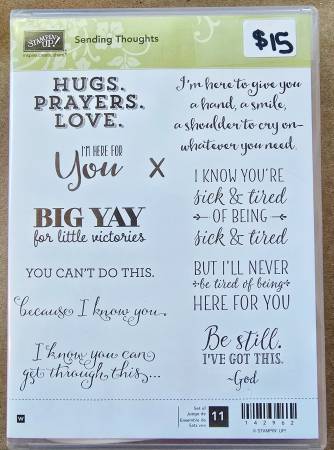 STAMPIN' UP!
inspire. create. share.
Sending Thoughts
$15
HUGS.
PRAYERS.
LOVE.
I'M HERE FOR
You
X
BIG YAY
for little victories
YOU CAN'T DO THIS.
because I know you.
I know you can
get through this...
I'm here to give you
a hand, a smile,
a shoulder to cry on–
whatever you need.
I KNOW YOU'RE
sick & tired
OF BEING
sick & tired
BUT I'LL NEVER
be tired of being
HERE FOR YOU
Be still.
I'VE GOT THIS.
~God
W
Set of
Juego de
Ensemble de
11
142962
© STAMPIN' UP!